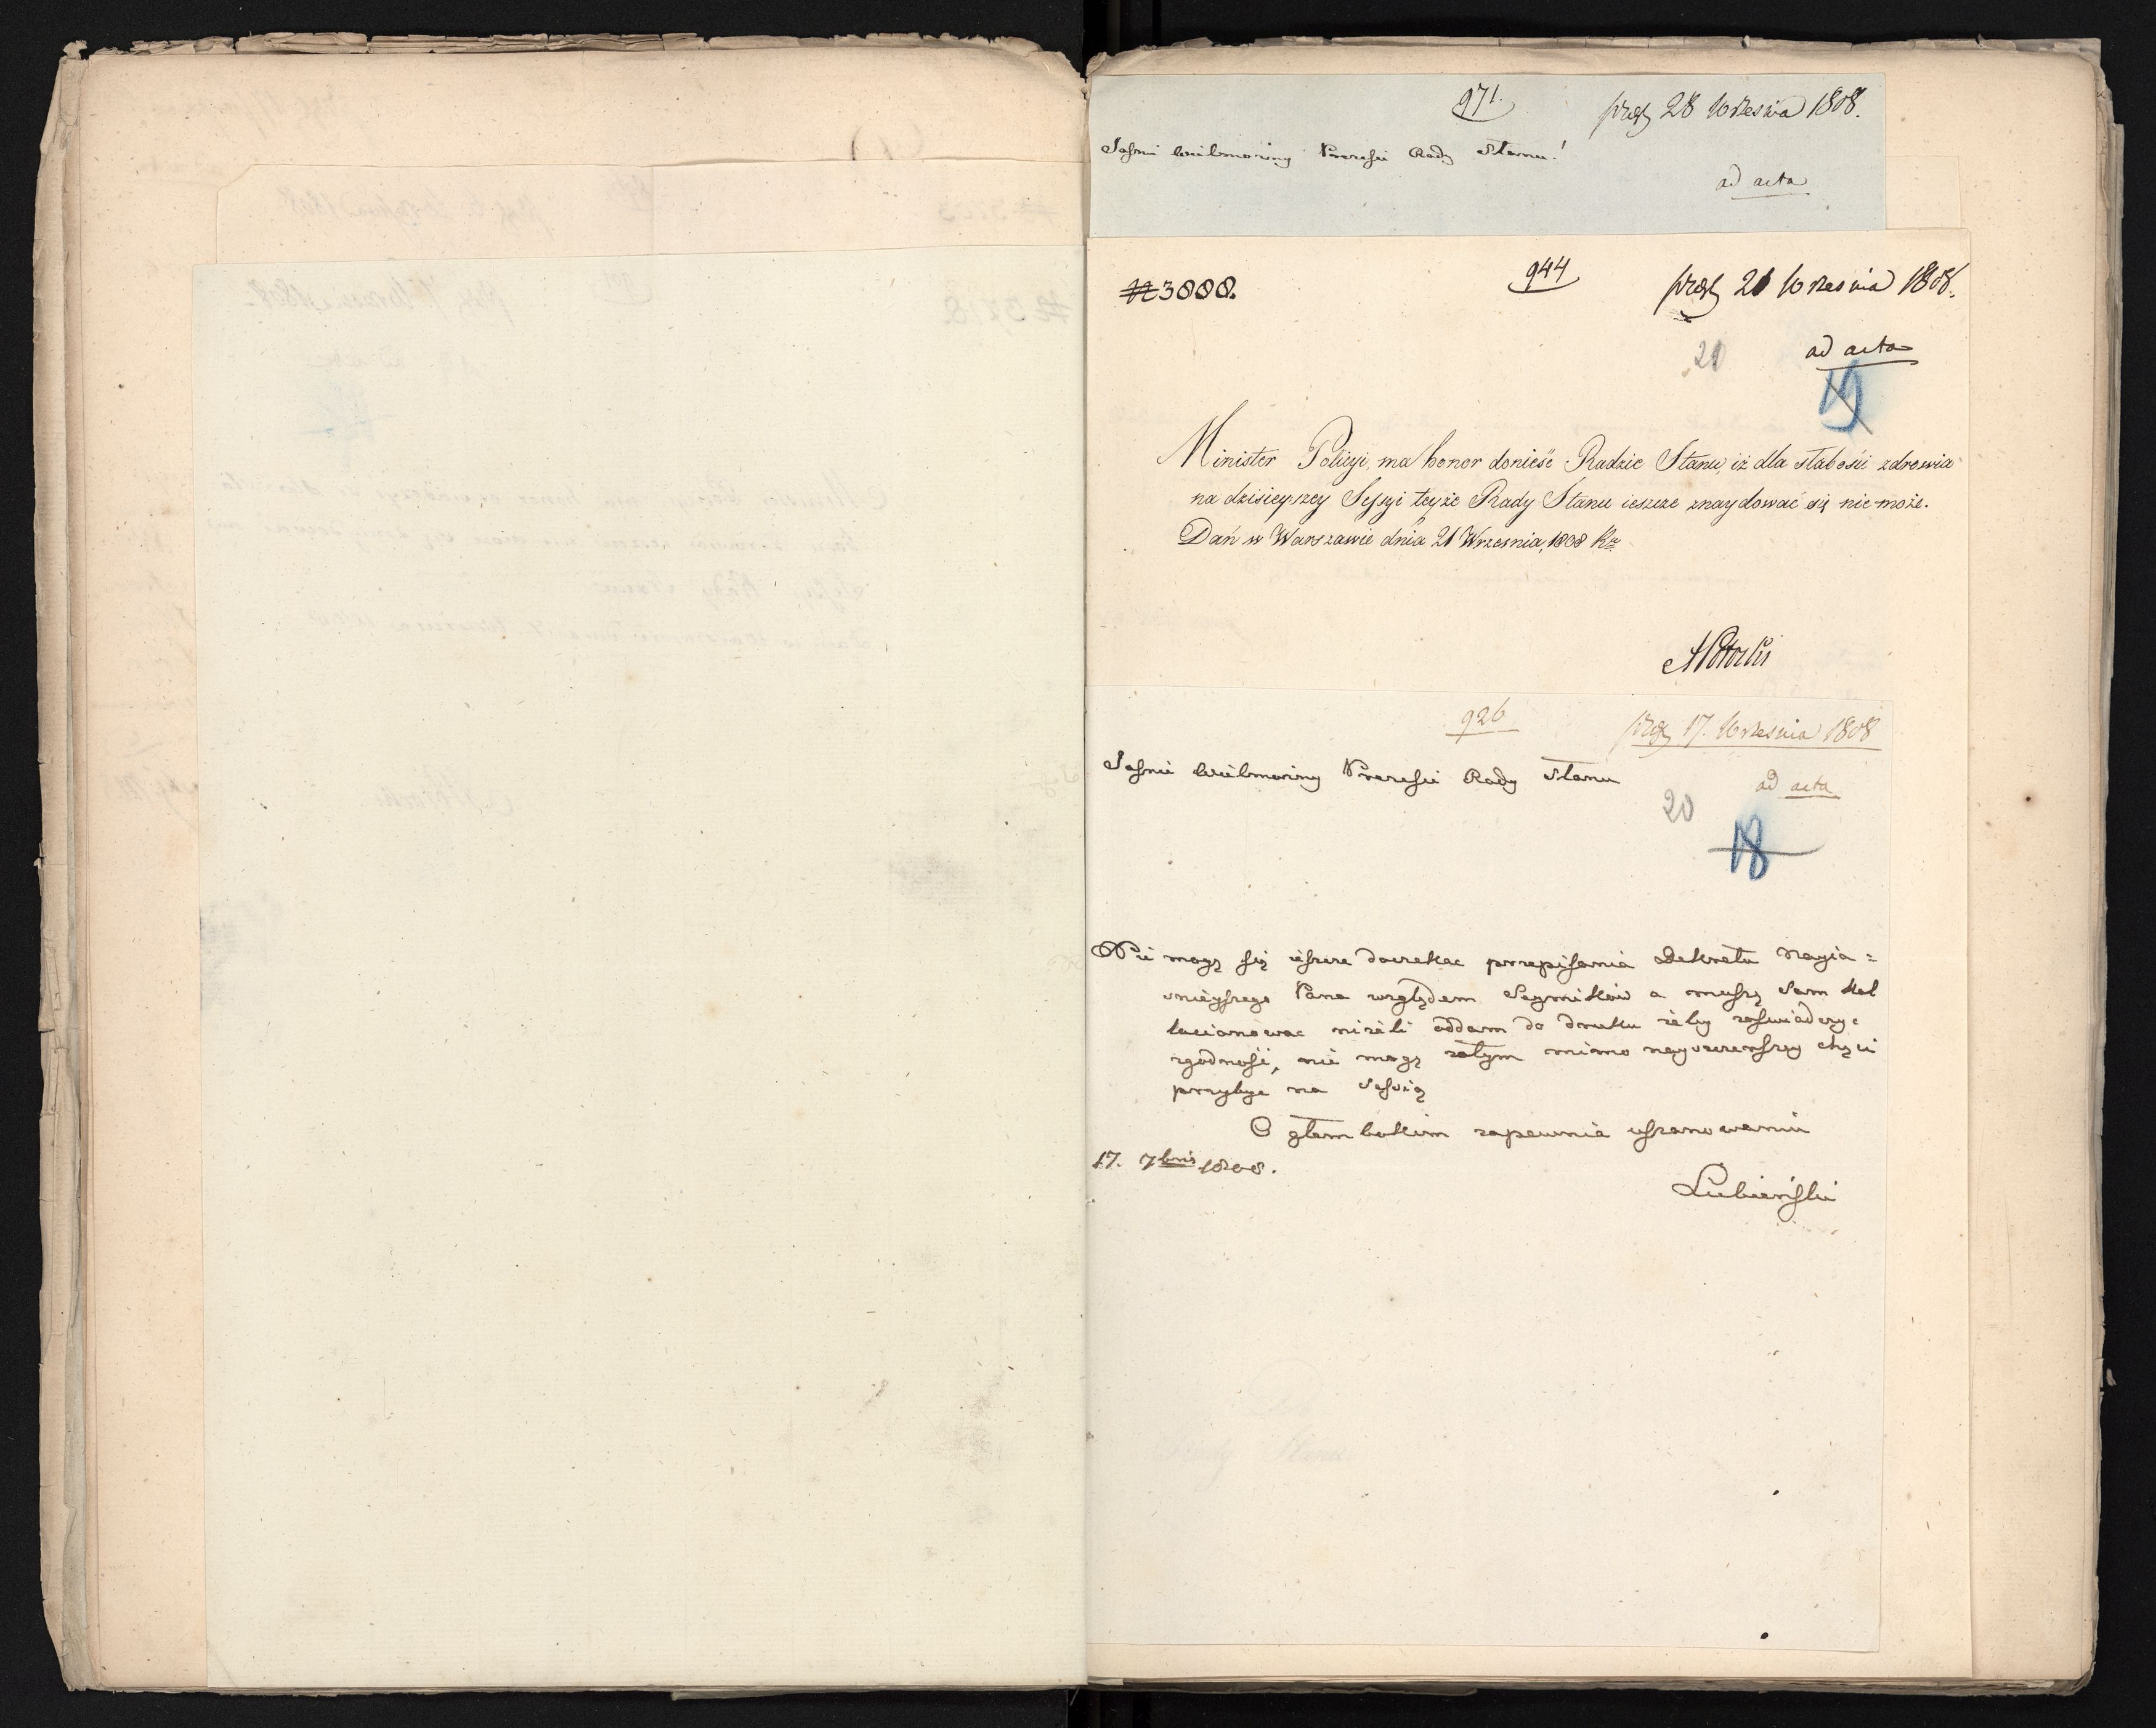 971.
28 Września 1808.
Jaśnie Wielmożny Prezesie Rady Stanu!
ad acta
N 3888.
944
21 Września 1808.
21
ad acta
19
Minister Policyi, ma honor donieść Radzie Stanu, iż dla słabości zdrowia
na dzisieyszey Sessyi teyże Rady Stanu ieszcze znaydować się nie może.
Dań w Warszawie dnia 21 Września, 1808 Ru
APotocki
926
17. Września 1808
Jaśnie Wielmożny Prezesie Rady Stanu
ad acta
20
18
Nie mogę się ieszcze doczekac przepisania Dekretu Nayia=
śnieyszego Pana względem Seymików a muszę sam kol
lacionowac nizeli oddam do druku zeby zaswiadczyc
zgodnosc, nie mogę zatym mimo nayszczerszey chęci
przybyc na Sessią
O głembokim zapewnia uszanowaniu
17. 7bris 1808.
Lubieński